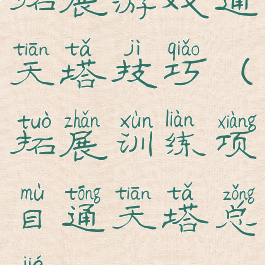 拓展游戏通
tiān tǎ jì qiǎo
天塔技巧（
tuò zhǎn xùn liàn xiàng
拓展训练项
mù tōng tiān tǎ zǒng
目通天塔总
jié